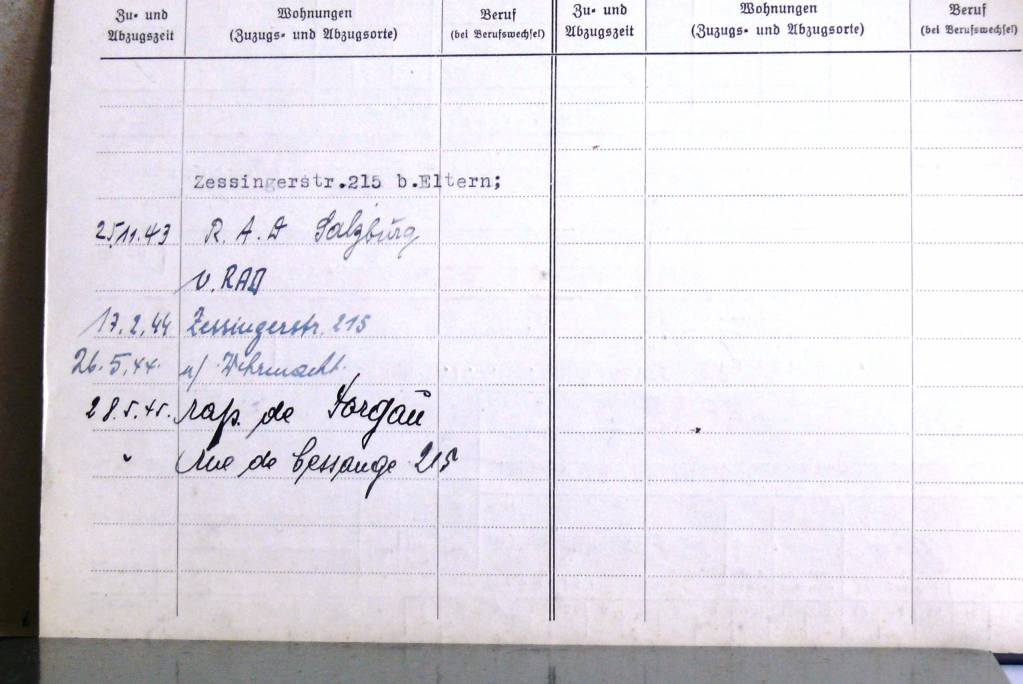 Zu- und Abzugszeit
Wohnungen (Zuzugs- und Abzugsorte)
Beruf (bei Berufswechsel)
Zu- und Abzugszeit
Wohnungen (Zuzugs- und Abzugsorte)
Beruf (bei Berufswechsel)
Zessingerstr.215 b.Eltern;
25/11.43 R. A. D Salzburg
v. RAD
17.2.44 Zessingerstr. 215
26.5.44. n/ Wehrmacht.
28.5.45. rap. de Torgau
" Rue de Cessange 215